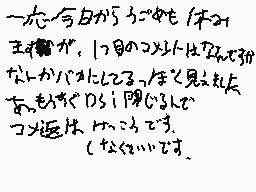 一応今日からうごめも休み
ますが、1つ目のコメントはなんですか
なんかバカにしてるっぽく見えました
あっもうすぐDSi閉じるんで
コメ返はけっこうです。
しなくていいです。